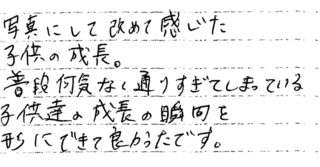 写真にして改めて感じた
子供の成長。
普段何気なく通りすぎてしまっている
子供達の成長の瞬間を
形にできて良かったです。